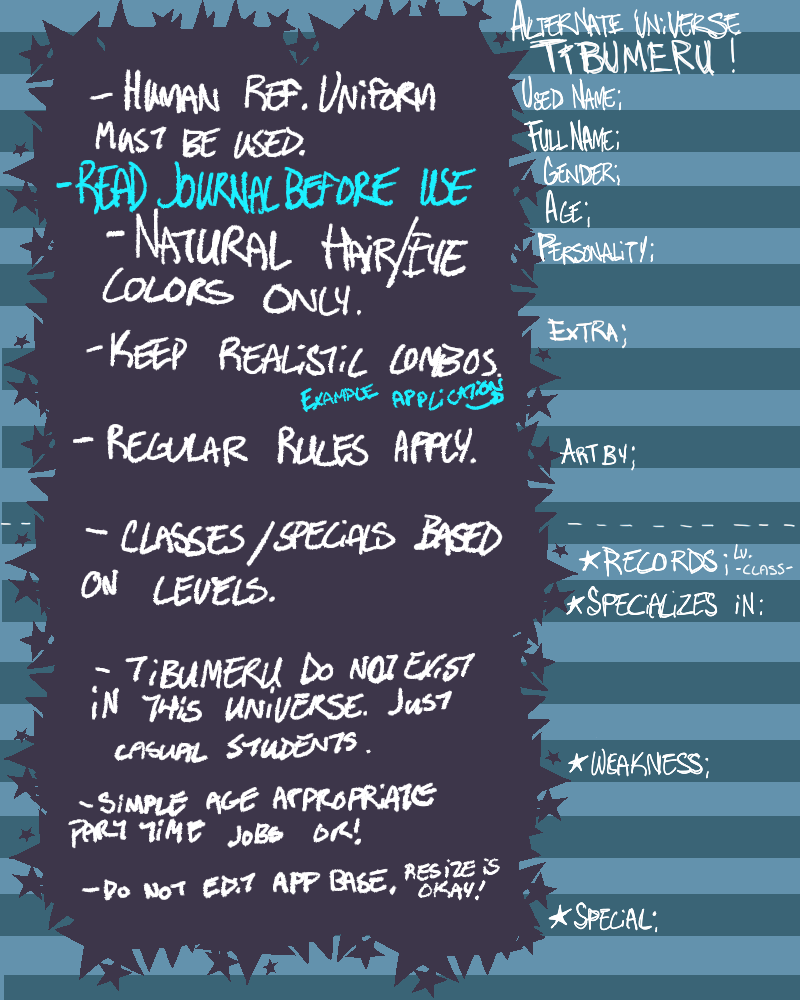 - HUMAN REF. UNIFORM
MUST BE USED.
- READ JOURNAL BEFORE USE
- NATURAL HAIR/EYE
COLORS ONLY.
- KEEP REALISTIC COMBOS.
EXAMPLE APPLICATION
- REGULAR RULES APPLY.
- CLASSES/SPECIALS BASED
ON LEVELS.
- TIBUMERU DO NOT EXIST
IN THIS UNIVERSE. JUST
CASUAL STUDENTS.
- SIMPLE AGE APPROPRIATE
PART TIME JOBS OR!
- DO NOT EDIT APP BASE. RESIZE IS
OKAY!
ALTERNATE UNIVERSE
TIBUMERU!
USED NAME;
FULL NAME;
GENDER;
AGE;
PERSONALITY;
EXTRA;
ART BY;
★RECORDS; LV.
-CLASS-
★SPECIALIZES IN:
★WEAKNESS;
★SPECIAL;